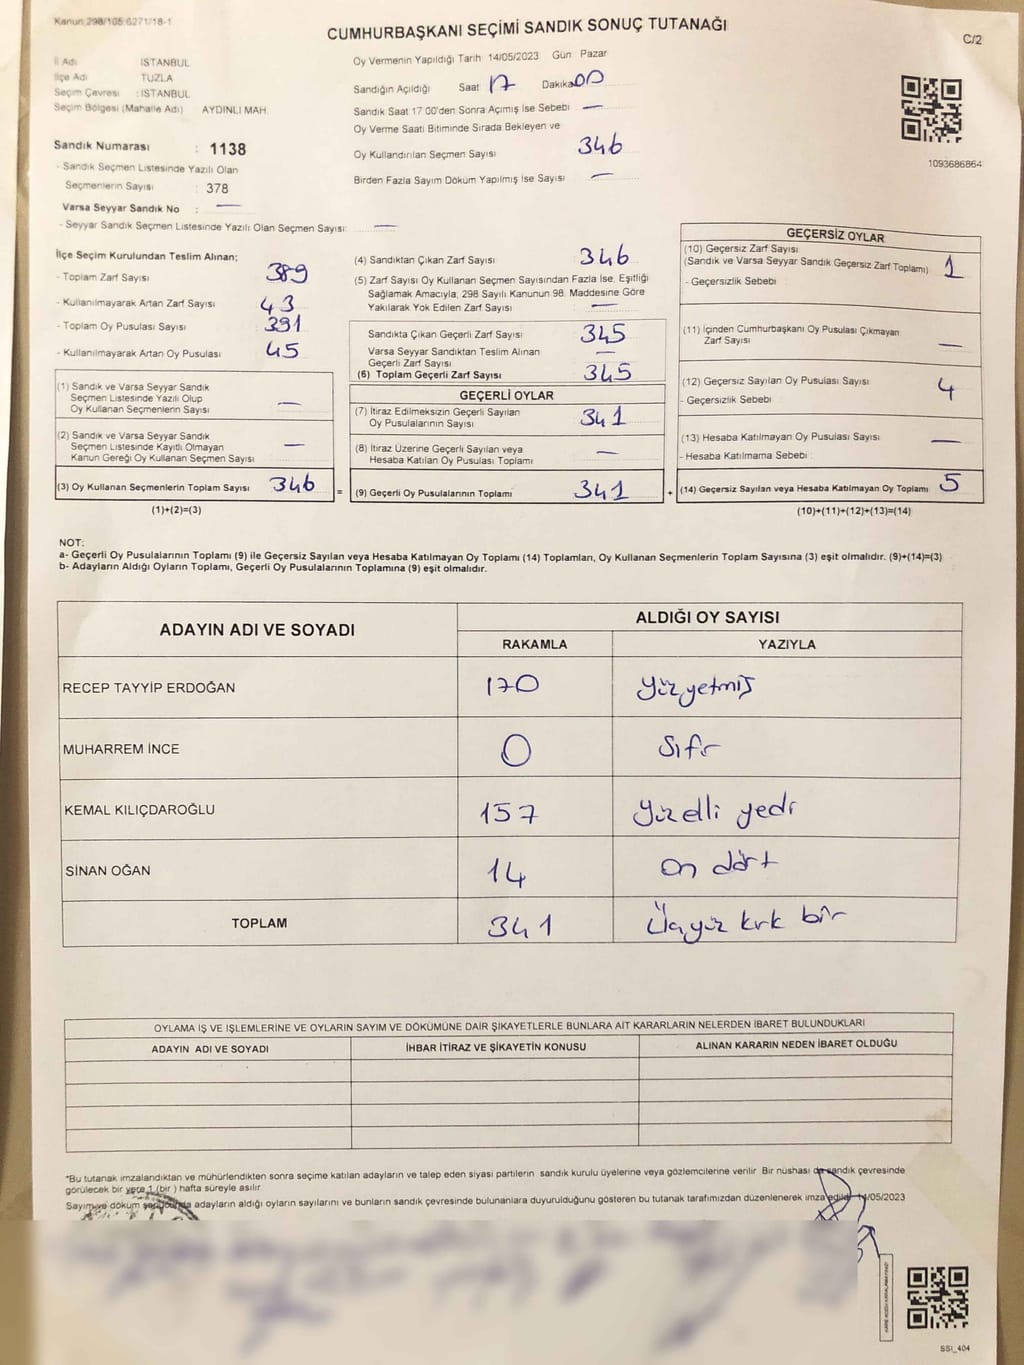 Kanun 298/105 6271/18-1
CUMHURBAŞKANI SEÇİMİ SANDIK SONUÇ TUTANAĞI
C/2
İl Adı İSTANBUL
İlçe Adı TUZLA
Seçim Çevresi : İSTANBUL
Seçim Bölgesi (Mahalle Adı) AYDINLI MAH.
Oy Vermenin Yapıldığı Tarih 14/05/2023 Gün Pazar
Sandığın Açıldığı Saat 17 Dakika 00
Sandık Saat 17 00'den Sonra Açımış İse Sebebi —
Oy Verme Saati Bitiminde Sırada Bekleyen ve
Oy Kullandırılan Seçmen Sayısı 346
Birden Fazla Sayım Döküm Yapılmış İse Sayısı —
1093686864
Sandık Numarası : 1138
- Sandık Seçmen Listesinde Yazılı Olan
Seçmenlerin Sayısı : 378
Varsa Seyyar Sandık No : —
- Seyyar Sandık Seçmen Listesinde Yazılı Olan Seçmen Sayısı: —
İlçe Seçim Kurulundan Teslim Alınan;
- Toplam Zarf Sayısı 389
- Kullanılmayarak Artan Zarf Sayısı 43
- Toplam Oy Pusulası Sayısı 391
- Kullanılmayarak Artan Oy Pusulası 45
(1) Sandık ve Varsa Seyyar Sandık
Seçmen Listesinde Yazılı Olup
Oy Kullanan Seçmenlerin Sayısı —
(2) Sandık ve Varsa Seyyar Sandık
Seçmen Listesinde Kayıtlı Olmayan
Kanun Gereği Oy Kullanan Seçmen Sayısı —
(3) Oy Kullanan Seçmenlerin Toplam Sayısı 346 =
(1)+(2)=(3)
(4) Sandıktan Çıkan Zarf Sayısı 346
(5) Zarf Sayısı Oy Kullanan Seçmen Sayısından Fazla İse, Eşitliği
Sağlamak Amacıyla, 298 Sayılı Kanunun 98. Maddesine Göre
Yakılarak Yok Edilen Zarf Sayısı —
Sandıkta Çıkan Geçerli Zarf Sayısı 345
Varsa Seyyar Sandıktan Teslim Alınan
Geçerli Zarf Sayısı —
(6) Toplam Geçerli Zarf Sayısı 345
GEÇERLİ OYLAR
(7) İtiraz Edilmeksizin Geçerli Sayılan
Oy Pusulalarının Sayısı 341
(8) İtiraz Üzerine Geçerli Sayılan veya
Hesaba Katılan Oy Pusulası Toplamı —
(9) Geçerli Oy Pusulalarının Toplamı 341 +
GEÇERSİZ OYLAR
(10) Geçersiz Zarf Sayısı
(Sandık ve Varsa Seyyar Sandık Geçersiz Zarf Toplamı) 1
- Geçersizlik Sebebi
(11) İçinden Cumhurbaşkanı Oy Pusulası Çıkmayan
Zarf Sayısı —
(12) Geçersiz Sayılan Oy Pusulası Sayısı 4
- Geçersizlik Sebebi
(13) Hesaba Katılmayan Oy Pusulası Sayısı —
- Hesaba Katılmama Sebebi
(14) Geçersiz Sayılan veya Hesaba Katılmayan Oy Toplamı 5
(10)+(11)+(12)+(13)=(14)
NOT:
a- Geçerli Oy Pusulalarının Toplamı (9) ile Geçersiz Sayılan veya Hesaba Katılmayan Oy Toplamı (14) Toplamları, Oy Kullanan Seçmenlerin Toplam Sayısına (3) eşit olmalıdır. (9)+(14)=(3)
b- Adayların Aldığı Oyların Toplamı, Geçerli Oy Pusulalarının Toplamına (9) eşit olmalıdır.
ADAYIN ADI VE SOYADI
ALDIĞI OY SAYISI
RAKAMLA YAZIYLA
RECEP TAYYİP ERDOĞAN 170 Yüzyetmiş
MUHARREM İNCE 0 Sıfır
KEMAL KILIÇDAROĞLU 157 Yüzelli yedi
SİNAN OĞAN 14 On dört
TOPLAM 341 Üçyüz kırk bir
OYLAMA İŞ VE İŞLEMLERİNE VE OYLARIN SAYIM VE DÖKÜMÜNE DAİR ŞİKAYETLERLE BUNLARA AİT KARARLARIN NELERDEN İBARET BULUNDUKLARI
ADAYIN ADI VE SOYADI İHBAR İTİRAZ VE ŞİKAYETİN KONUSU ALINAN KARARIN NEDEN İBARET OLDUĞU
*Bu tutanak imzalandıktan ve mühürlendikten sonra seçime katılan adayların ve talep eden siyasi partilerin sandık kurulu üyelerine veya gözlemcilerine verilir Bir nüshası da sandık çevresinde
görülecek bir yere 1 (bir ) hafta süreyle asılır.
Sayım ve döküm sonucunda adayların aldığı oyların sayılarını ve bunların sandık çevresinde bulunanlara duyurulduğunu gösteren bu tutanak tarafımızdan düzenlenerek imza edildi 14/05/2023
SSI_404